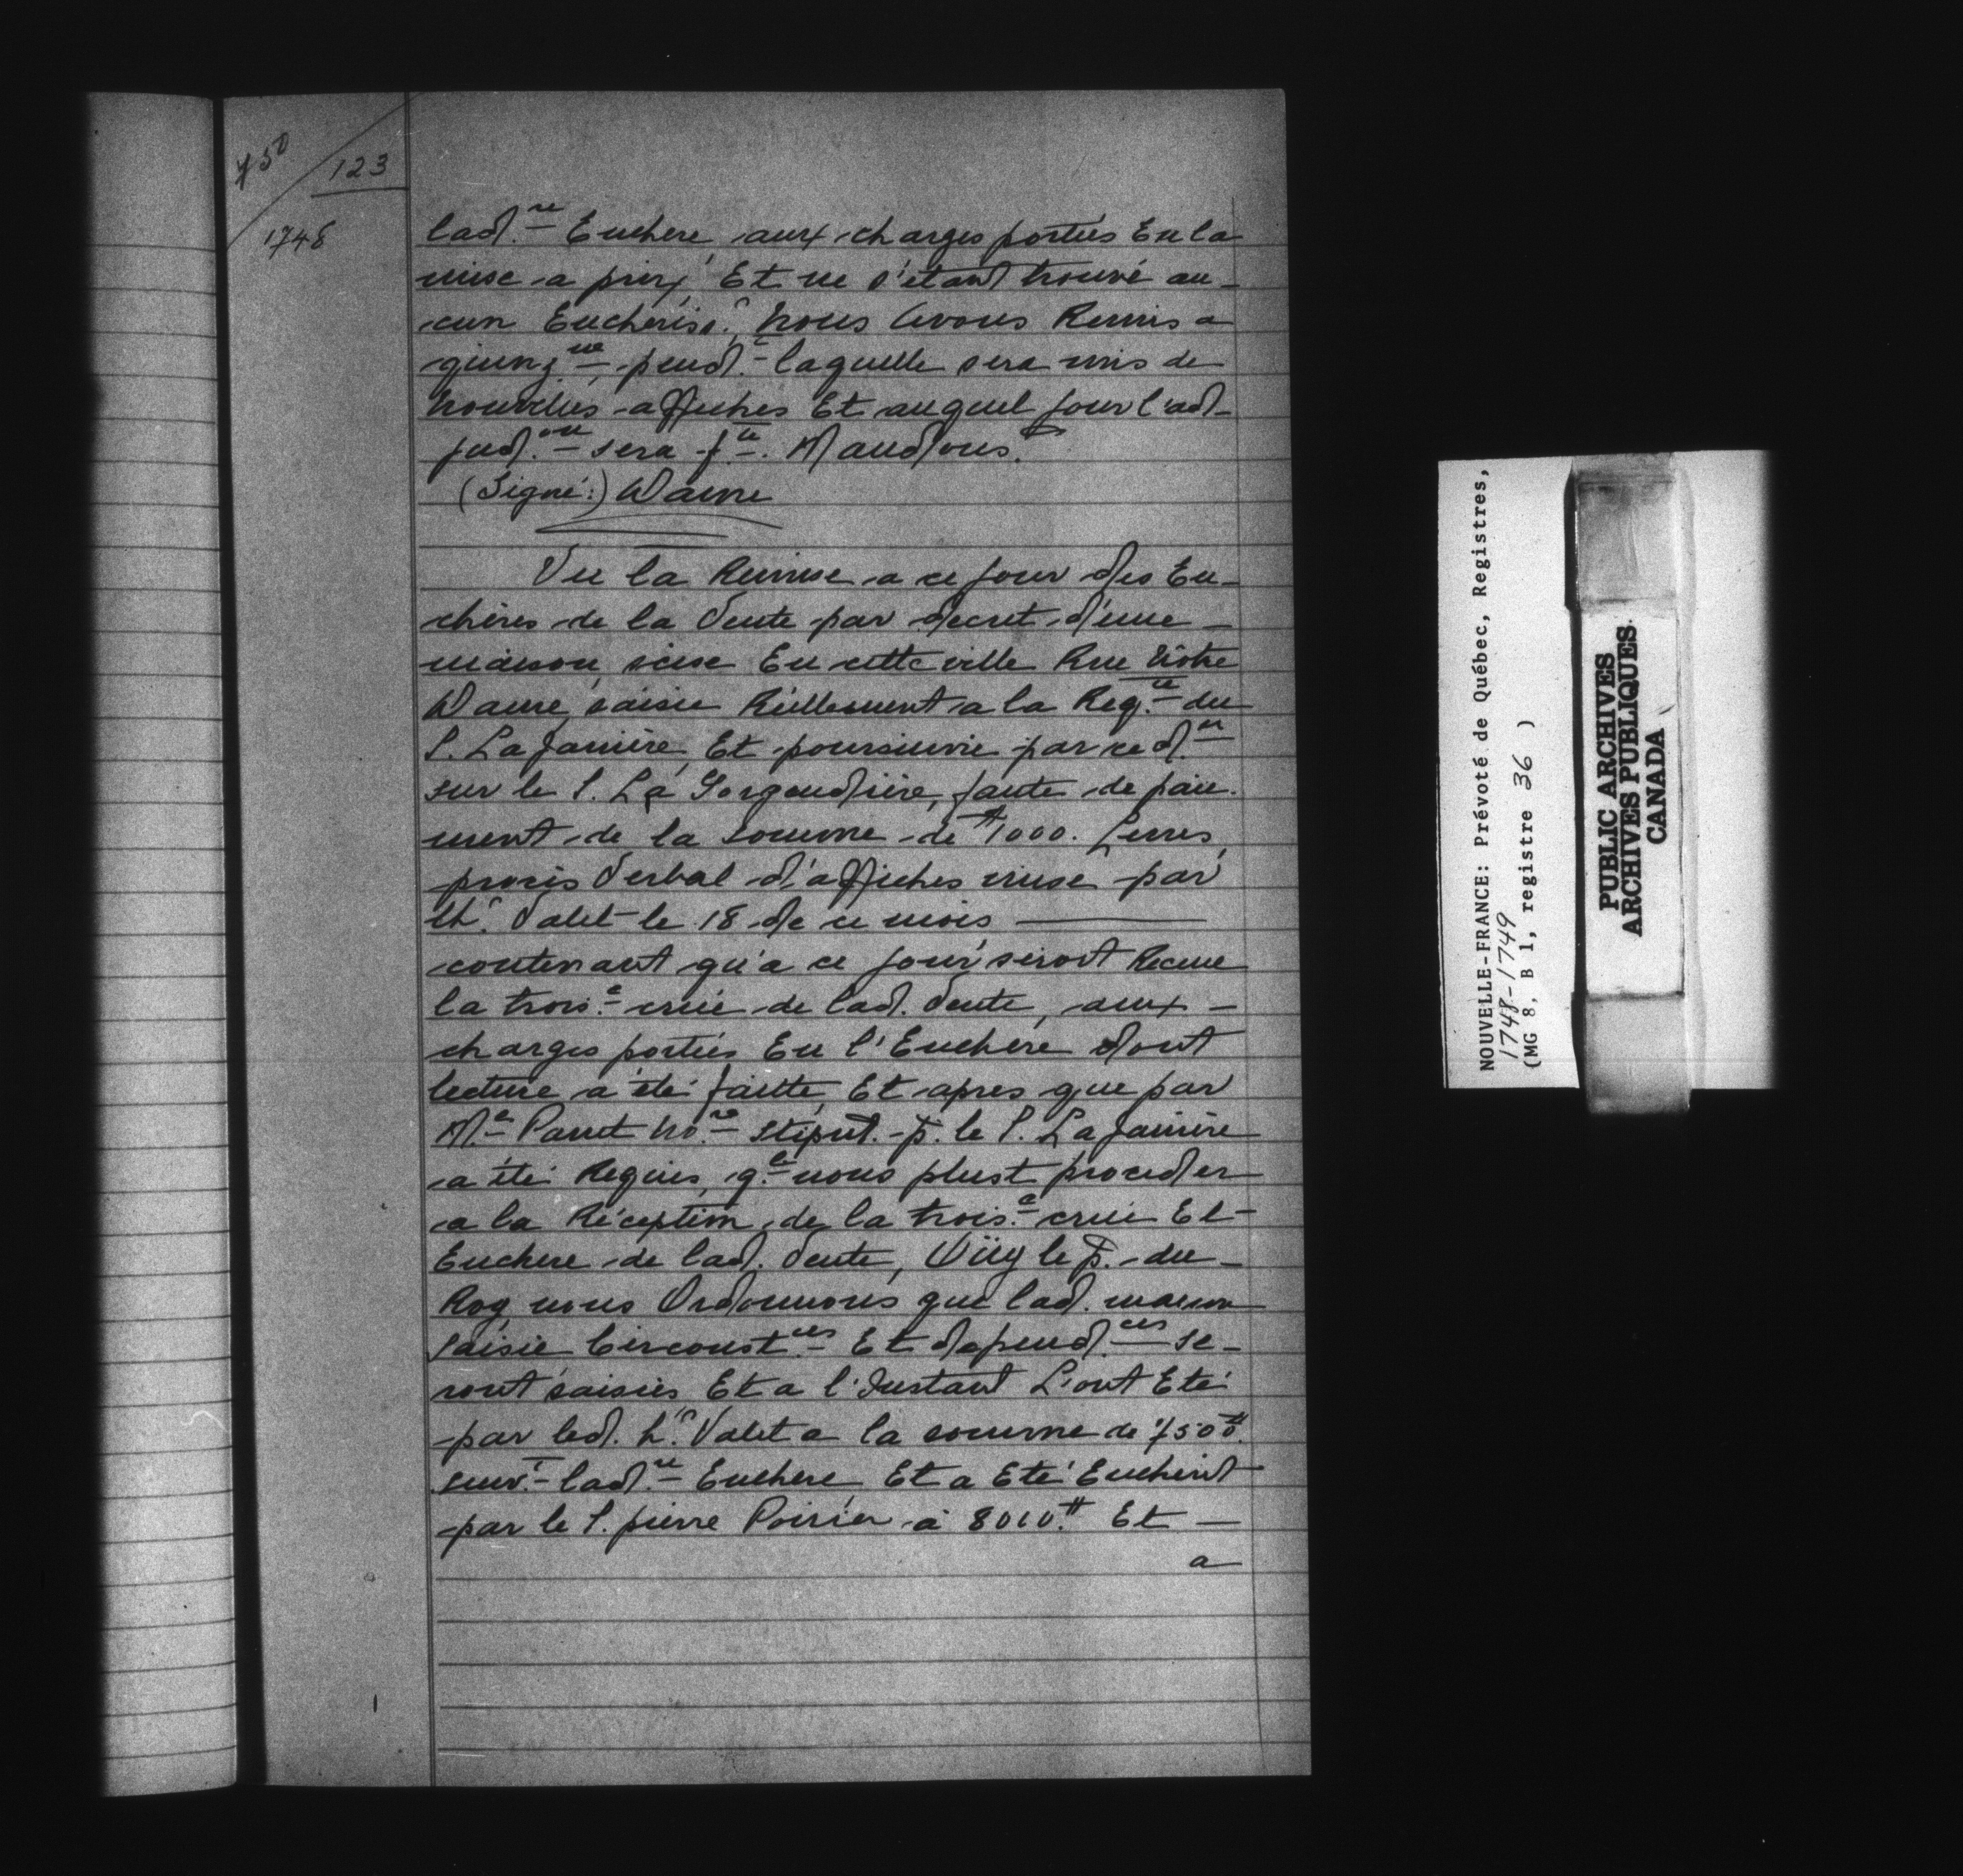 750
123
1748
lad.re Enchere aux charges portées En la
mise a prix, Et ne s'étant trouvé au-
cun Encheriss.r, Nous Avons Remis a
quinz.ne, pend.t laquelle sera mis de
Nouvelles affiches Et auquel jour l'ad-
jud.on sera f.te. Mandons.
(Signé:) Daine
Vu la Remise a ce jour des En-
chères de la Vente par decret d'une
maison, scise En cette ville Rue Notre
Dame, saisie Réellement a la Req.te du
S. La Janière, Et poursuivie par ced.er
sur le S. La Gorgendière, faute de paie-
ment de la somme de 1000.
procès Verbal d'affiches mise par
Th.r Valet le 18 de ce mois
contenant qu'a ce jour seroit Receue
la trois.e criée de lad. Vente, aux
charges portées En l'Enchere dont
lecture a été faitte, Et apres que par
M.e Panet no.re stipul. p. le S. La Janière
a été Requis, q.le nous plust proceder
a la Réception de la trois.e criée Et
Enchere de lad. Vente, Oüy le P. du
Roy nous Ordonnons que lad. maison
saisie Circonst.ces Et depend.ces se-
ront saisies Et a l'Instant L'ont Eté
par led. h.r Valet a la somme de 7500.#
suiv.t lad.re Enchere, Et a Eté Encherit
par le S. pierre Poirier à 8010.# Et
a
NOUVELLE-FRANCE: Prévoté de Québec, Registres,
1748-1749
(MG 8, B 1, registre 36 )
PUBLIC ARCHIVES
ARCHIVES PUBLIQUES
CANADA